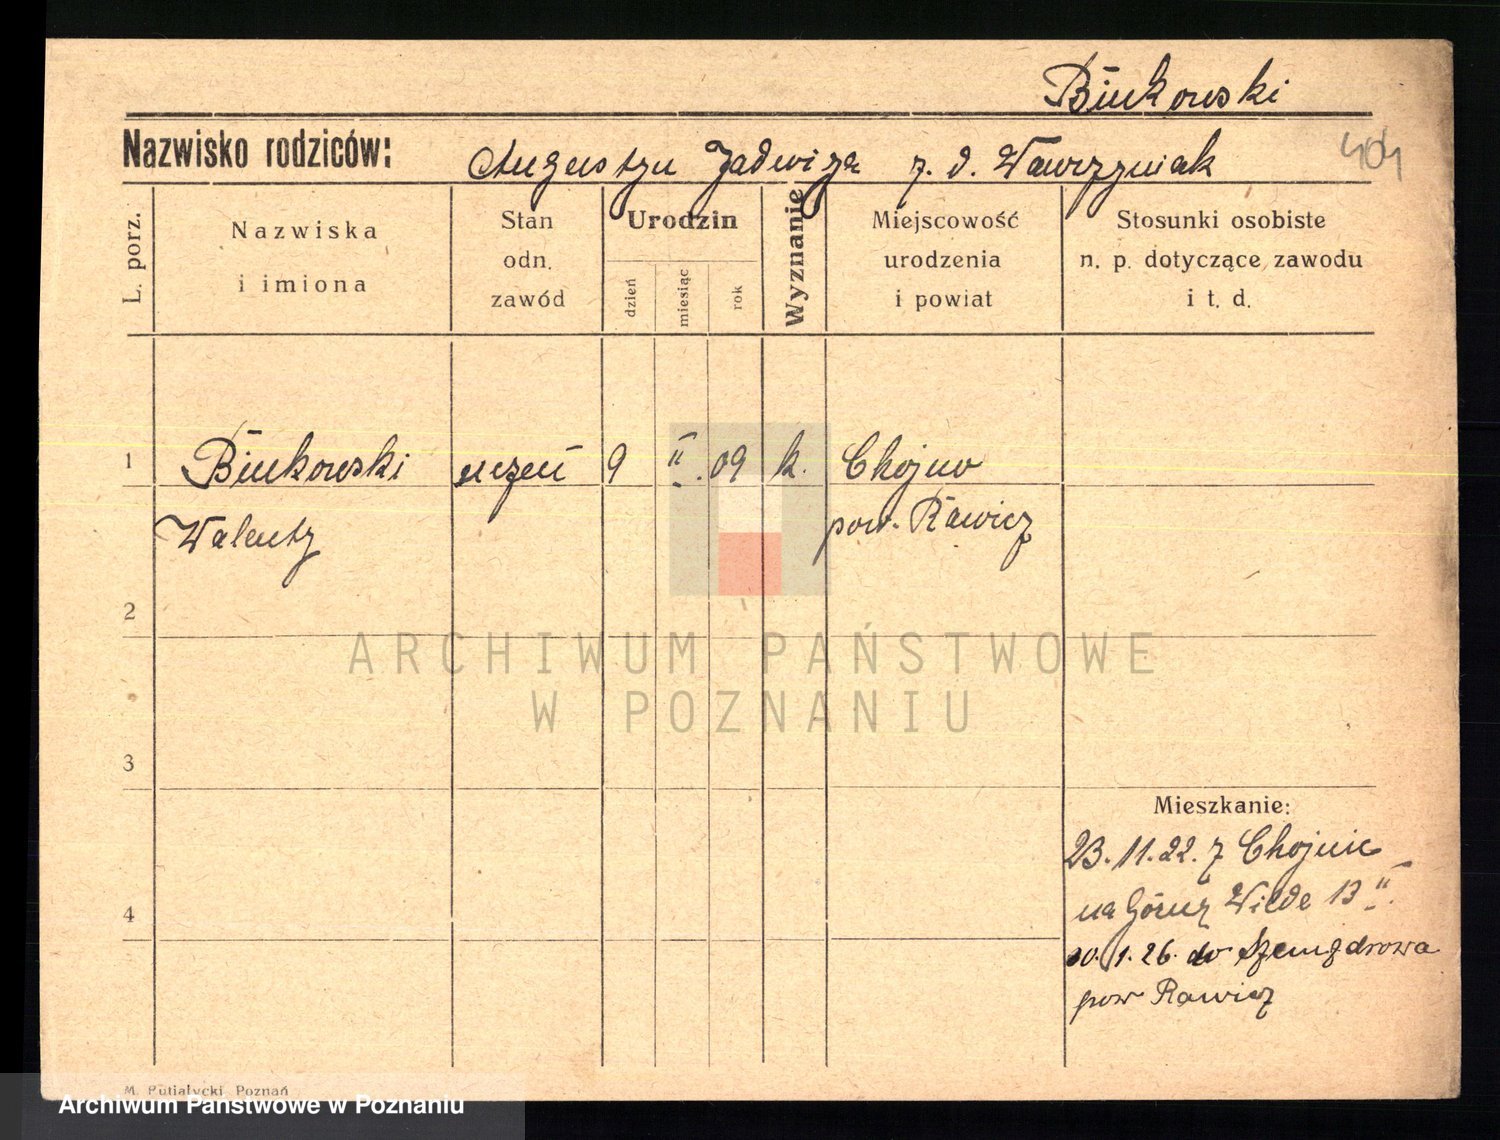 Bińkowski
Nazwisko rodziców: Augustyn Jadwiga z. d. Wawrzyniak
404
L. porz.
Nazwiska
i imiona
Stan
odn.
zawód
Urodzin
dzień
miesiąc
rok
Wyznanie
Miejscowość
urodzenia
i powiat
Stosunki osobiste
n. p. dotyczące zawodu
i t. d.
1 Bińkowski uczeń 9 II. 09 k. Chojno
Walenty pow. Rawicz
2
ARCHIWUM PAŃSTWOWE
W POZNANIU
3
Mieszkanie:
23. 11. 22. z Chojnie
na Górnej Wilde 13 II.
4
1. 26. do
pow Rawicz
M. Putiatycki, Poznań
Archiwum Państwowe w Poznaniu